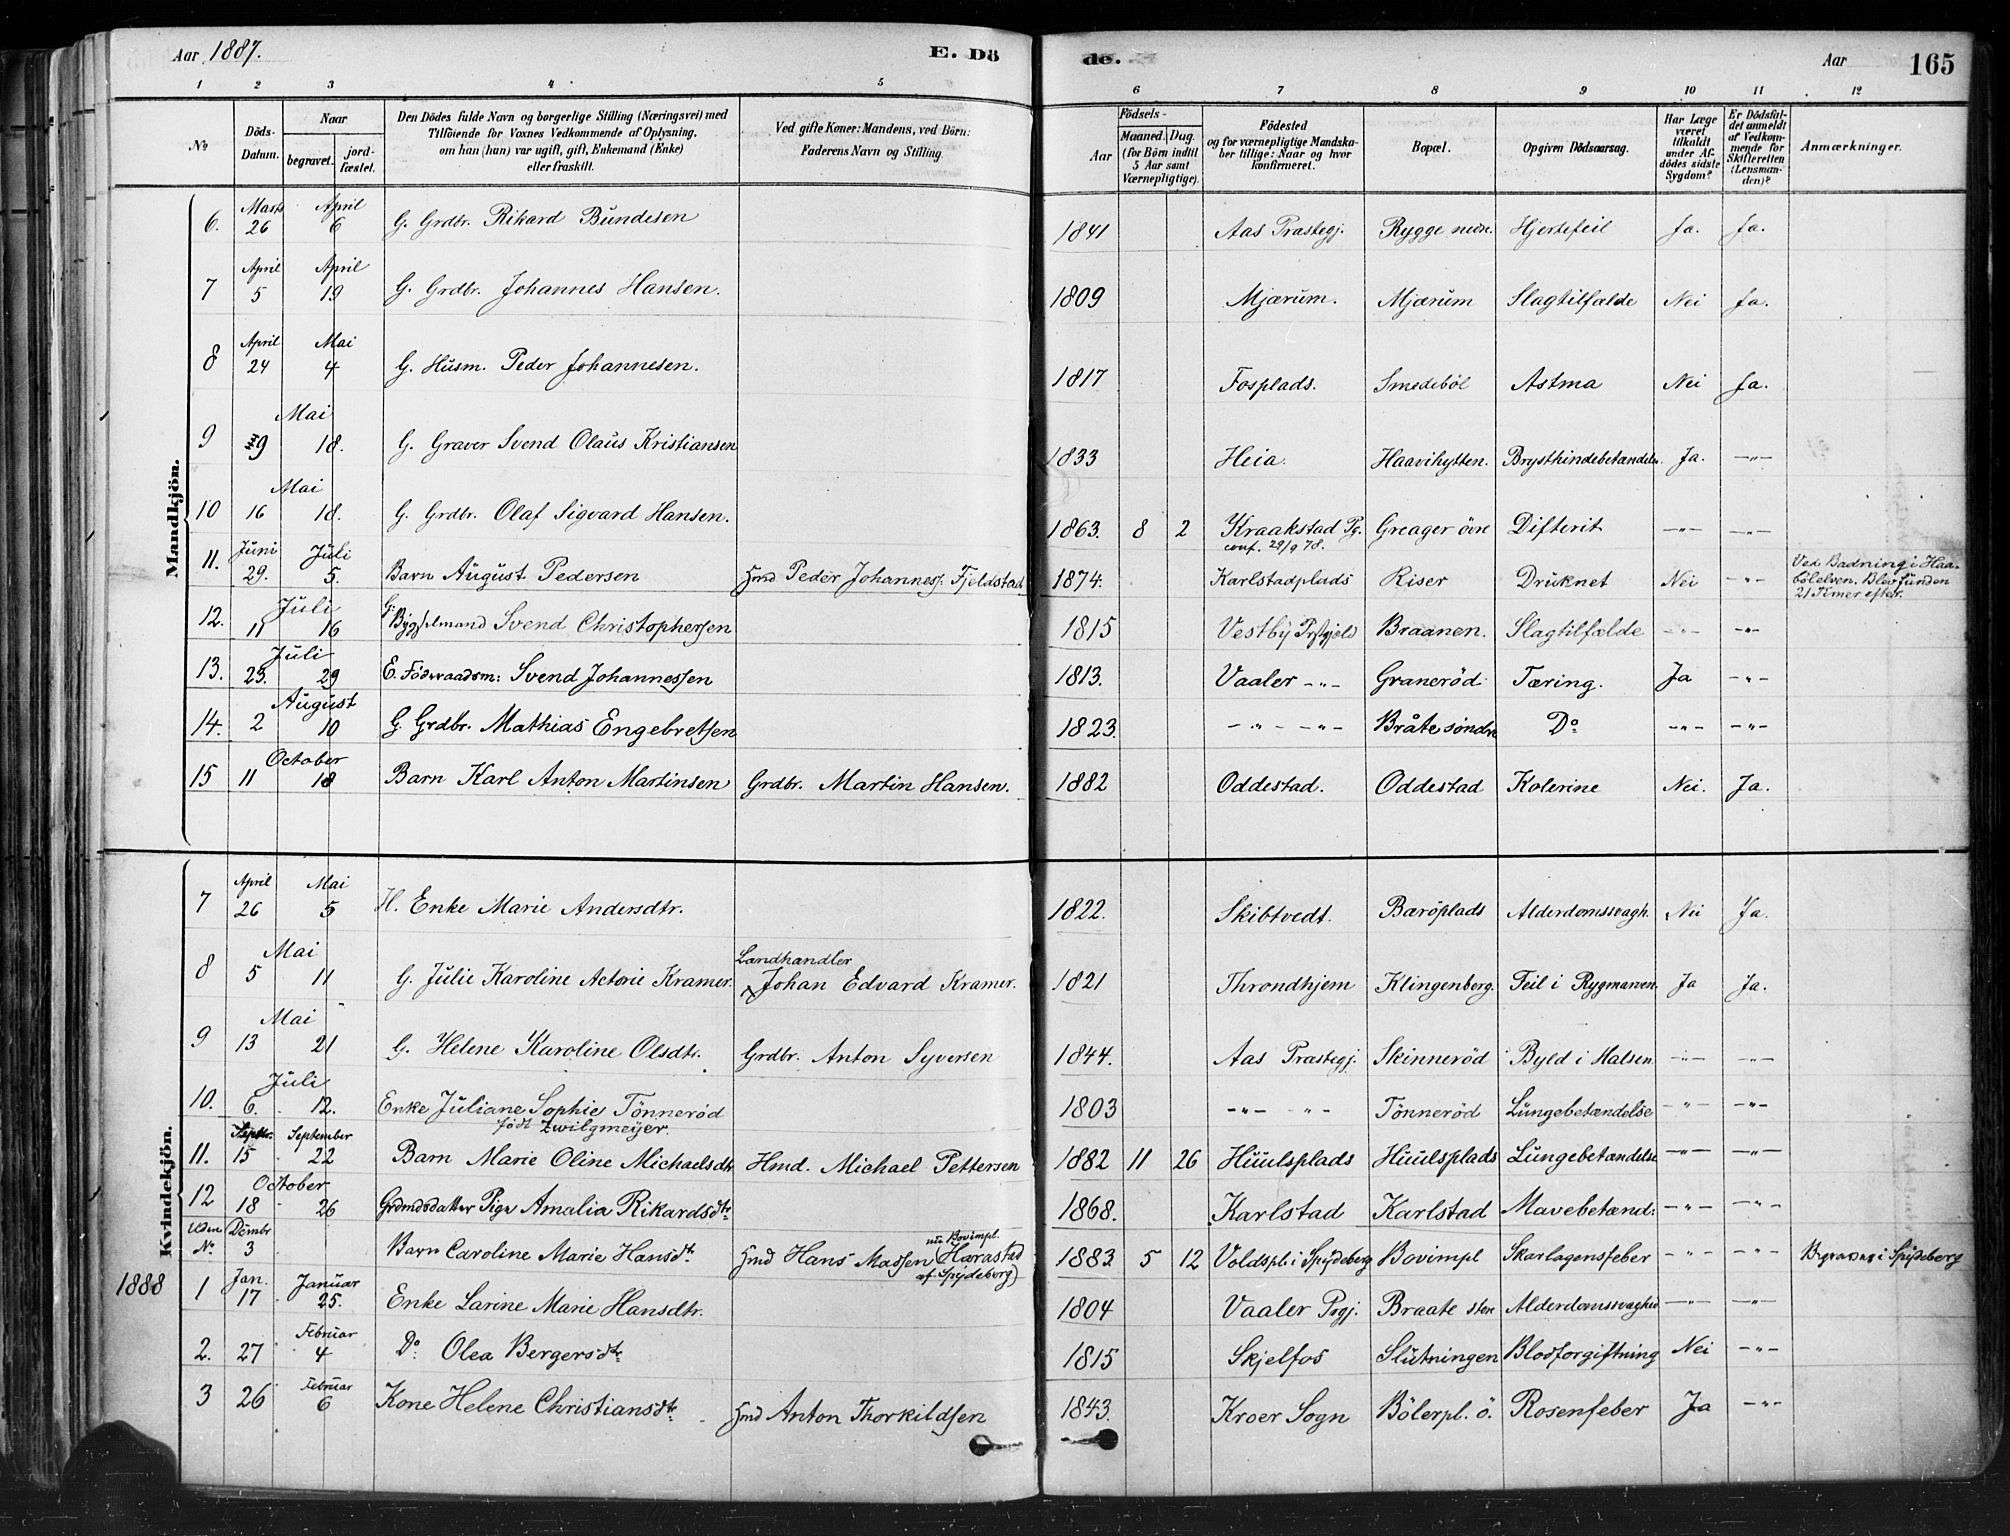 Aar 1887. E. Dö de. Aar 165
1 2 3 4 5 6 7 8 9 10 11 12
No
Döds-Datum.
Naar begravet. jord-fæstet.
Den Dödes fulde Navn og borgerlige Stilling (Næringsvei) med
Tilföiende for Voxnes Vedkommende af Oplysning,
om han (hun) var ugift, gift, Enkemand (Enke)
eller fraskilt.
Ved gifte Koner: Mandens, ved Börn:
Faderens Navn og Stilling.
Födsels-
Aar Maaned. Dag.
(for Börn indtil
5 Aar samt
Værnepligtige).
Födested
og for værnepligtige Mandska-
ber tillige: Naar og hvor
konfirmeret.
Bopæl.
Opgiven Dödsaarsag.
Har Læge
været
tilkaldt
under Af-
dödes sidste
Sygdom?
Er Dödsfal-
det anmeldt
af Vedkom-
mende for
Skifteretten
(Lensman-
den)?
Anmærkninger.
Mandkjön.
6. Marts 26 April 6 G. Grdbr. Rikard Bundesen 1841 Aas Prastegj. Rygge nedr. Hjertefeil Ja. Ja.
7 April 5 April 19 G. Grdbr. Johannes Hansen. 1809 Mjærum. Mjærum Slagtilfælde Nei Ja.
8 April 24 Mai 4 G. Husm. Peder Johannesen. 1817 Fosplads. Smedeböl Astma Nei Ja.
9 9 Mai 18. G. Graver Svend Olaus Kristiansen 1833 Heia. Haavihytten. Brysthindebetændelse. Ja. -"-
10 16 Mai 18. G. Grdbr. Olaf Sigvard Hansen. 1863. 8 2 Kraakstad Pg. conf. 29/9 78. Greager övre Difterit -"- -"-
11. Juni 29. Juli 5. Barn August Pedersen Hmd Peder Johanness. Fjeldstad 1874. Karlstadplads Riser Druknet Nei -"- Ved Badning i Haa-
bölelven. Blev funden
21 Timer efter.
12. 11 Juli 16 G. Bygselmand Svend Christophersen 1815 Vestby Prstgjeld Braanen. Slagtilfælde -"- -"-
13. 23. Juli 29 E. Föderaadsm: Svend Johannessen 1813. Vaaler -"- Graneröd Tæring. Ja -"-
14. 2 August 10 G. Grdbr. Mathias Engebretsen 1823. -"- -"- Bråte søndre Do -"- -"-
15 11 October 18 Barn Karl Anton Martinsen Grdbr. Martin Hansen. 1882 Oddestad. Oddestad Kolerine Nei. Ja.
Kvindekjön.
7 April 26 Mai 5 H. Enke Marie Andersdtr. 1822. Skibtvedt. Baröplads Alderdomssvagh. Nei Ja.
8 5 Mai 11 G. Julie Karoline Actorie Kramer. Landhandler Johan Edvard Kramer. 1821 Throndhjem Klingenberg. Feil i Rygmarven. Ja Ja.
9 13 Mai 21 G. Helene Karoline Olsdtr. Grdbr. Anton Syversen 1844. Aas Prastegj. Skinneröd Byld i Halsen -"- -"-
10. 6. Juli 12. Enke Juliane Sophie Tönneröd
födt Zwilgmeyer. 1803 -"- -"- Tönneröd Lungebetændelse -"- -"-
11. Septbr. 15 September 22 Barn Marie Oline Michaelsdtr Hmd. Michael Pettersen 1882 11 26 Huulsplads Huulsplads Lungebetændelse -"- -"-
12 18 October 26 Grdmdsdatter Pige Amalia Rikardsdtr 1868. Karlstad Karlstad Mavebetænd: -"- -"-
Uden No. Dcmbr 3 Barn Caroline Marie Hansdtr Hmd Hans Massen Harastad nu Bovimpl. af Spydeberg) 1883. 5 12 Voldspl. i Spydeberg Bovimpl Skarlagensfeber -"- -"- Begravet i Spydeberg
1888 1 Jan. 17 Januar 25. Enke Larine Marie Hansdtr. 1804 Vaaler Prgj. Braate stre Alderdomssvaghed -"- -"-
2. 27 Februar 4 Do. Olea Bergersdtr 1815 Skjelfos Slutningen Blodforgiftning Nei -"-
3 26 Februar 6 Kone Helene Christiansdtr. Hmd Anton Thorkildsen 1843. Kroer Sogn Bölerpl. ö. Rosenfeber Ja -"-